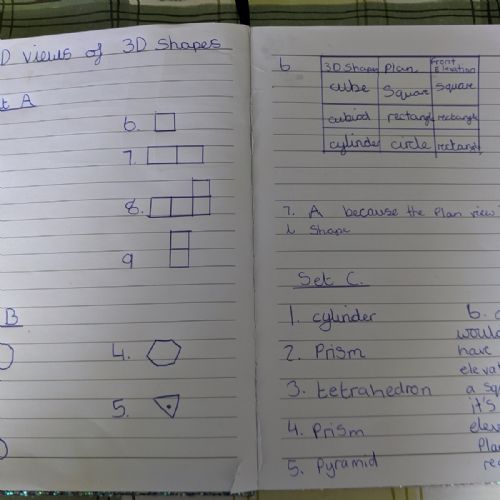 D views of 3D shapes
t A
6.
7.
8.
9
B
4.
5.
6
3D Shapes Plan Front Elevation
cube Square Square
cuboid rectangl rectangl
cylinder circle rectang
7. A because the Plan view
L Shape
Set C.
1. cylinder
2. Prism
3. tetrahedron
4. Prism
5. Pyramid
6. a
would
have
eleva
a sq
it's
elev
Pla
rec